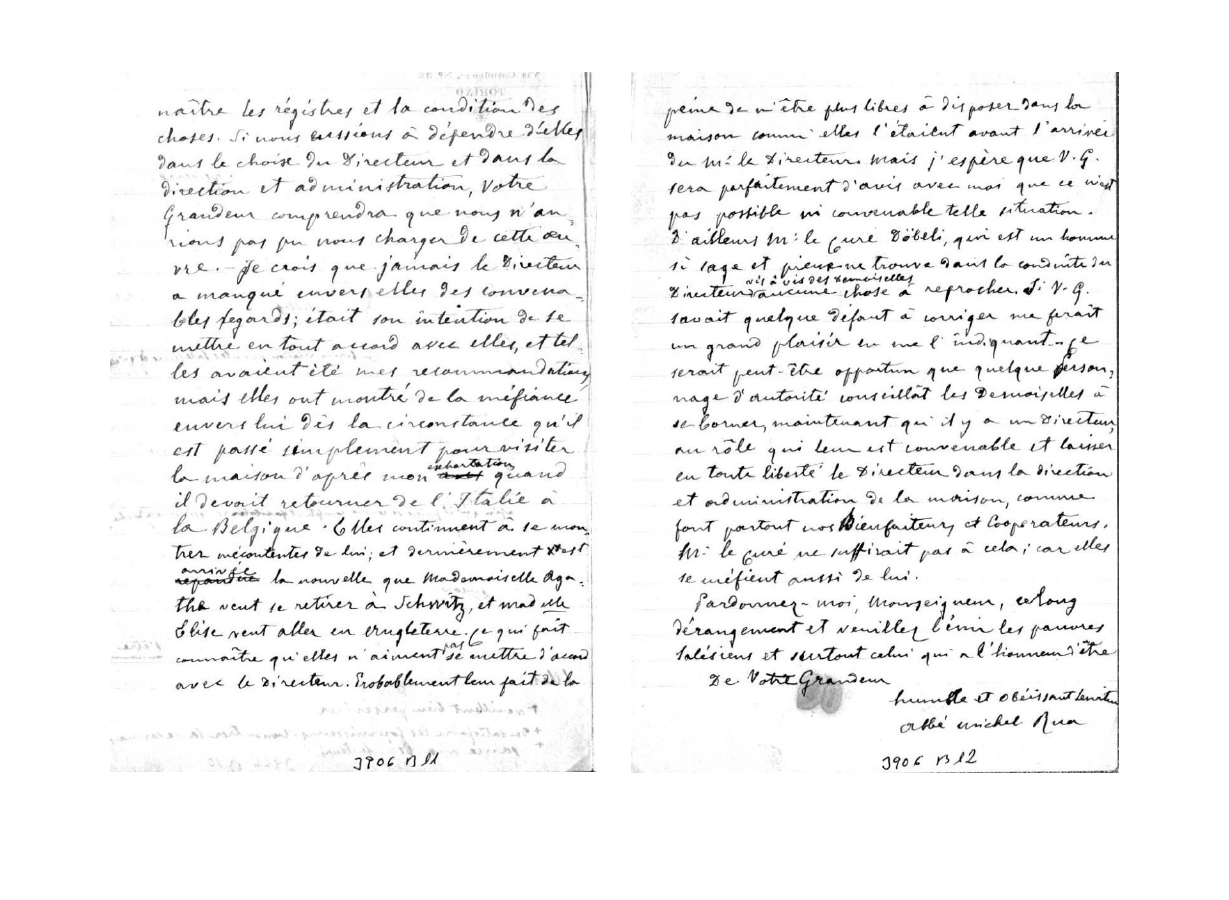 naître les régistres et la condition des
choses. Si nous eussions à dépendre d'elles
dans le choix du Directeur et dans la
direction et administration, Votre
Grandeur comprendra que nous n'au-
rions pas pu nous charger de cette œu-
vre. - Je crois que jamais le Directeur
a manqué envers elles des convena-
bles égards; était son intention de se
mettre en tout accord avec elles, et tel-
les avaient été mes recommandations,
mais elles ont montré de la méfiance
envers lui dès la circonstance qu'il
est passé simplement pour visiter
la maison d'après mon exhortation quand
il devait retourner de l'Italie à
la Belgique. Elles continuent à se mon-
trer mécontentes de lui; et dernièrement est
arrivée
répandue la nouvelle que Mademoiselle Aga-
the veut se retirer à Schwitz, et madelle
Elise veut aller en Angleterre. Ce qui fait
connaître qu'elles n'aiment pas se mettre d'accord
avec le Directeur. Probablement leur fait de la
3906 B 11
peine de n'être plus libres à disposer dans la
maison comm' elles l'étaient avant l'arrivée
du Mr. le Directeur. Mais j'espère que V. G.
sera parfaitement d'avis avec moi que ce n'est
pas possible ni convenable telle situation.
D'ailleurs Mr. le Curé Döbeli, qui est un homme
si sage et pieux ne trouve dans la conduite du
vis à vis des Demoiselles
Directeur d'aucune chose à reprocher. Si V. G.
savait quelque défaut à corriger me ferait
un grand plaisir en me l'indiquant. - Ce
serait peut-être opportun que quelque person-
nage d'autorité conseillât les Demoiselles à
se borner, maintenant qu'il y a un Directeur,
au rôle qui leur est convenable et laisser
en toute liberté le Directeur dans la direction
et administration de la maison, comme
font partout nos Bienfaiteurs et Coopérateurs.
Mr. le Curé ne suffirait pas à cela; car elles
se méfient aussi de lui.
Pardonnez-moi, Monseigneur, ce long
dérangement et veuillez bénir les pauvres
Salésiens et surtout celui qui a l'honneur d'être
De Votre Grandeur
humble et obéissant serviteur
abbé Michel Rua
3906 B 12